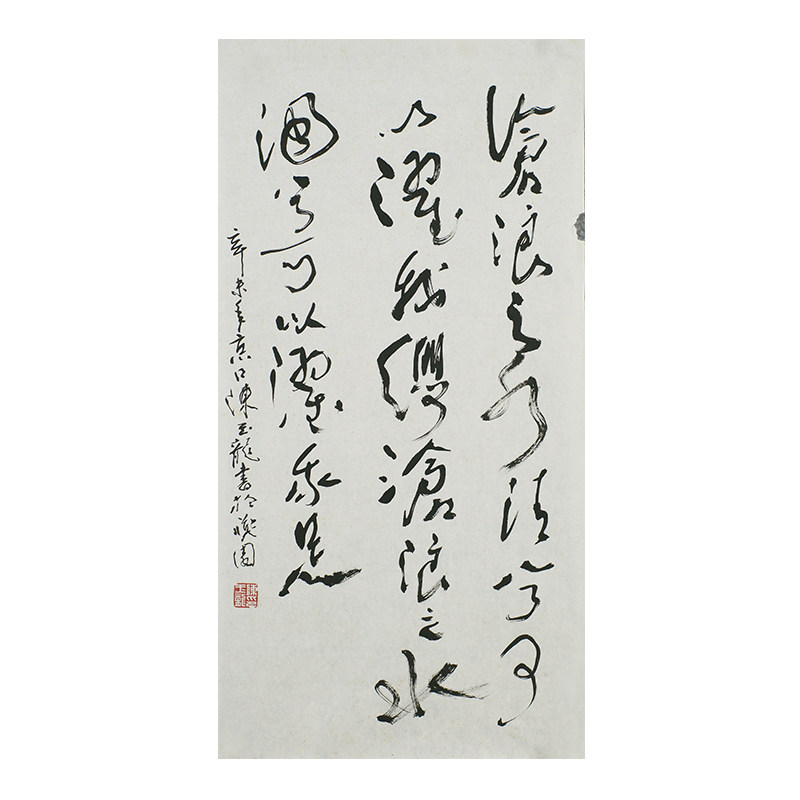 滄浪之水清兮可
以濯我纓滄浪之水
濁兮可以濯我足
辛未年京口陳玉龍書於曉園